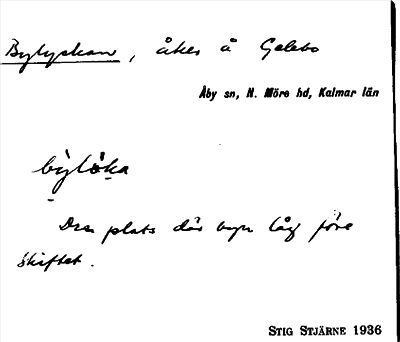 Bylyckan, åker å Gelebo
Åby sn, N. Möre hd, Kalmar län
bylöka
Den plats där byn låg före
skiftet.
STIG STJÄRNE 1936